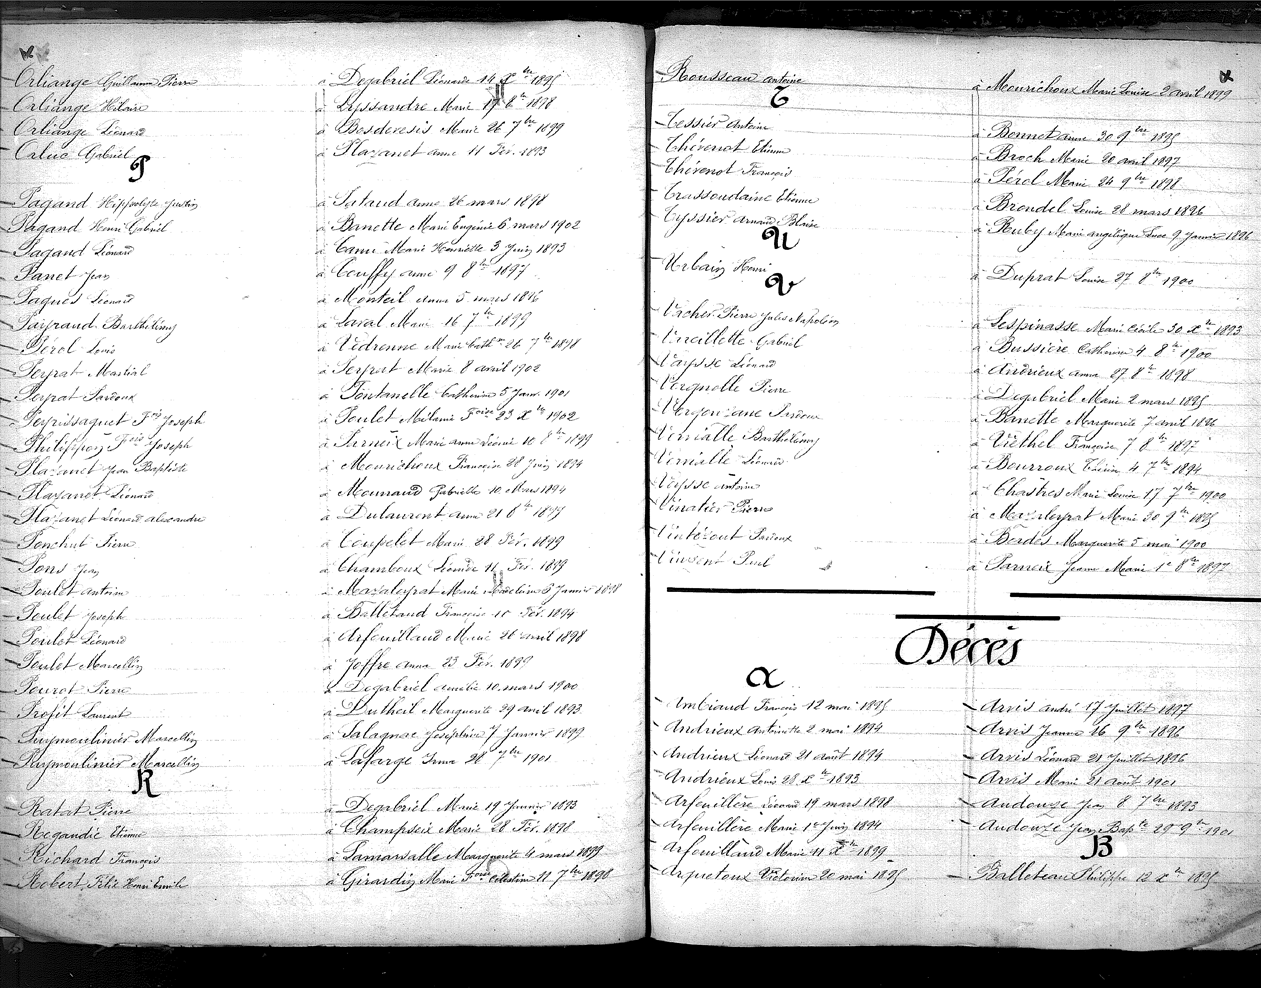 Orliange Guillaume Pierre à Degabriel Léonarde 14 Xbre 1895
Orliange Hilaire à Lyssandre Marie 17 8bre 1898
Orliange Léonard à Besderesis Marie 26 7bre 1899
Orluc Gabriel à Plazanet anna 11 Fév. 1893
P
Pagand Hippolyte Justin à Sataud anna 26 mars 1898
Pagand Henri Gabriel à Banette Marie Eugénie 6 mars 1902
Pagand Léonard à Came Marie Henriette 3 Juin 1893
Panet Jean à Couffy anna 9 8bre 1897
Paques Léonard à Monteil anna 5 mars 1896
Payraud Barthélémy à Laval Marie 16 7bre 1899
Pérol Louis à Védrenne Marie Cathne 26 7bre 1898
Peyrat Martial à Peyrat Marie 8 avril 1902
Peyrat Sardoux à Fontanelle Catherine 5 Janv. 1901
Peyrissaguet Fois Joseph à Poulet Mélanie Foise 23 Xbre 1902
Philippon Fois Joseph à Sarneix Marie anne Léonie 10 8bre 1899
Plazanet Jean Baptiste à Mourichoux Françoise 28 Juin 1894
Plazanet Léonard à Mournaud Gabrielle 10 Mars 1894
Plazanet Léonard alexandre à Dulaurent anna 21 8bre 1899
Ponchut Pierre à Coupelet Marie 28 Fév. 1899
Pons Jean à Chamboux Léonarde 11 Fév. 1899
Poulet antoine à Mazaleyrat Marie Marceline 8 Janvier 1898
Poulet Joseph à Balletaud Françoise 10 Fév. 1894
Poulet Léonard à Arfouilloud Marie 26 avril 1898
Poulet Marcellin à Joffre anna 23 Fév. 1899
Pourot Pierre à Degabriel amélie 10 mars 1900
Profit Laurent à Dutheil Marguerite 29 avril 1893
Puymoulinier Marcellin à Salagnac Joséphine 7 Janvier 1899
Puymoulinier Marcellin à Lafarge Irma 28 7bre 1901
R
Ratat Pierre à Degabriel Marie 19 Janvier 1893
Regaudie Etienne à Champseix Marie 28 Fév. 1898
Richard François à Lamarsalle Marguerite 4 mars 1899
Robert, Félix Henri Emile à Girardin Marie Foise Célestine 21 7bre 1898
Rousseau antoine à Mourichoux Marie Louise 2 avril 1899
T
Tessier antoine à Bonnet anna 30 9bre 1895
Thévenot Etienne à Broch Marie 20 avril 1897
Thévenot François à Pérol Marie 24 9bre 1898
Trassoudaine Etienne à Brondel Louise 28 mars 1896
Tyssier armand Blaise à Ruby Marie angélique Luce 9 Janvier 1896
U
Urbain Henri à Duprat Louise 27 8bre 1900
V
Vacher Pierre Jules Napoléon à Lespinasse Marie Cécile 30 Xbre 1893
Vareillette Gabriel à Bussière Catherine 4 8bre 1900
Vaysse Léonard à Andrieux anna 27 8bre 1898
Vergnolle Pierre à Degabriel Marie 2 mars 1895
Vergonzane Sardoux à Banette Marguerite 7 avril 1896
Vernialle Barthélémy à Viethel Françoise 7 8bre 1897
Vernialle Léonard à Bourroux 4 7bre 1894
Veysse antoine à Chastres Marie Louise 17 7bre 1900
Vinatier Pierre à Mazaleyrat Marie 30 9bre 1895
Vintézout Sardoux à Bordes Marguerite 5 mai 1900
Vincent Paul à Parneix Jeanne Marie 1er 8bre 1897
Décès
A
Ambiaud François 12 mai 1895
Andrieux Antoinette 2 mai 1894
Andrieux Léonard 21 août 1894
Andrieux Louis 28 Xbre 1893
Arfeuillère Léonard 19 mars 1898
Arfeuillère Marie 1er Juin 1894
Arfouilloud Marie 11 Xbre 1899
Arquetoux Victorine 20 mai 1895
Arvis andré 17 Juillet 1897
Arvis Jeanne 16 9bre 1896
Arvis Léonard 21 Juillet 1896
Arvis Marie 21 août 1901
Audouze Jean 8 7bre 1893
Audouze Jean Bapte 29 9bre 1901
B
Balleteau Philippe 12 Xbre 1895